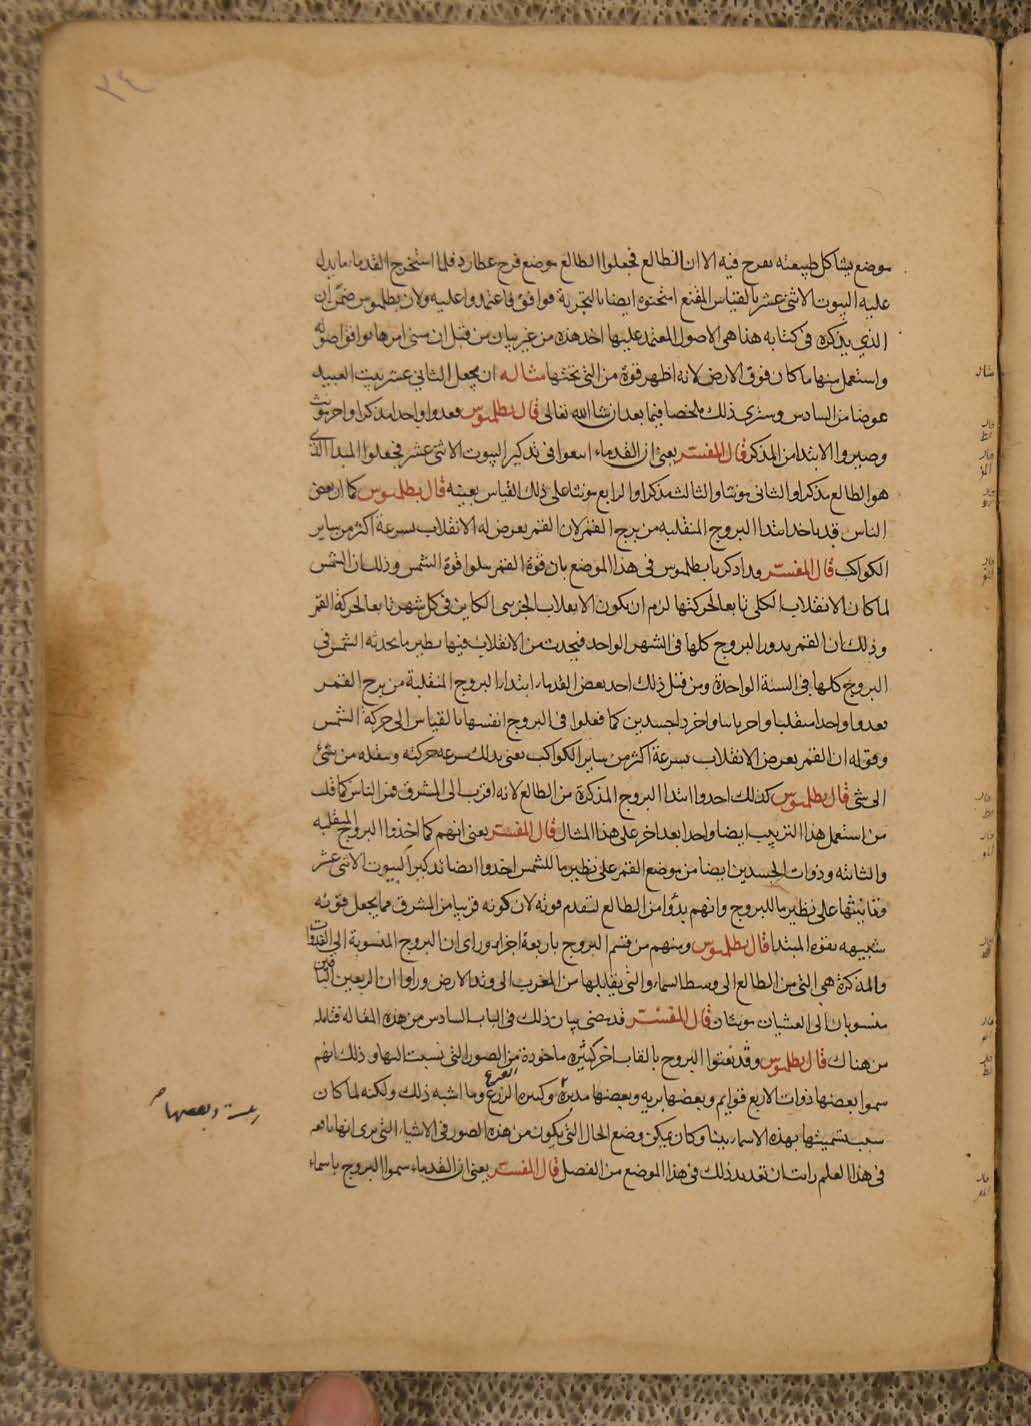 ٢٤
موضع يشاكل طبيعته يفرح فيه الا ان الطالع فجعلوا الطالع موضع فرح عطارد فلما استخرج القدماء ما يدل
عليه البيوت الاثنى عشر بالقياس المقنع امتحنوه ايضا بالتجربة فوافق فاعتمدوا عليه ولان بطلميوس ضمن ان
الذي يذكره في كتابه هذا هي الاصول المعتمد عليها اخذ هذه من غير بيان من قبل ان امرها توافق اصوله
واستعمل منها ما كان فوق الارض لانه اظهر قوة من التي تحتها مثاله ان يجعل الثاني عشر بيت العبيد
عوضا من السادس وسترى ذلك ملخصا فيما بعد ان شا الله تعالى قال بطلميوس فعدوا واحدا مذكرا واخر مونث
وصيروا الابتدا من المذكر قال المفسر يعني ان القدماء في تذكير البيوت الاثنى عشر فجعلوا المبدا الذي
هو الطالع مذكرا والثاني مونثا والثالث مذكرا والرابع مونثا على ذلك القياس بعينه قال بطلميوس كما ان بعض
الناس قد ياخد ابتدا البروج المنقلبه من برج القمر لان القمر يعرض له الانقلاب بسرعة اكثر من ساير
الكواكب قال المفسر بطلميوس في هذا الموضع بان قوة القمر تتلوا قوة الشمس وذلك ان الشمس
لما كان الانقلاب الكلي تابعا لحركتها لزم ان يكون الانقلاب الجزسي الكاين في كل شهر تابعا لحركة القمر
وذلك ان القمر يدور البروج كلها في الشهر الواحد فيحدث من الانقلاب فيها نظير ما يحدثه الشمس في
البروج كلها في السنة الواحدة ومن قبل ذلك اخد بعض القدماء ابتداء البروج المنقلبة من برج القمر
فعدوا واحدا منقلبا واخر ثابتا واخر ذا جسدين كما فعلوا في البروج انفسها بالقياس الى حركة الشمس
وقوله ان القمر يعرض الانقلاب بسرعة اكثر من ساير الكواكب يعني بذلك سرعه حركته وتنقله من شئ
الى شئ قال بطلميوس كذلك اخدوا ابتدا البروج المذكرة من الطالع لانه اقرب الى المشرق فمن الناس كما قلت
من استعمل هذا الترتيب ايضا واحدا بعد اخر على هذا المثال قال المفسر يعني انهم كما اخذوا البروج المنقلبه
والثابته وذوات الجسدين ايضا من موضع القمر على نظير ما للشمس اخدوا ايضا تذكير البيوت الاثنى عشر
وتانيثها على نظير ما للبروج وانهم بدؤا من الطالع لتقدم قوته لان كونه قريبا من المشرق مما يجعل قوته
شبيهه بقوه المبتدا قال بطلميوس ومنهم من قسم البروج باربعة اجزاء وراى ان البروج المنسوبة الى الغدوات
والمذكرة هي التي من الطالع الى وسط السماء والتي يقابلها من المغرب الى وتد الارض وراوا ان الربعين الباقين
منسوبان الى العشيان مونثان قال المفسر قد مضى بيان ذلك في الباب السادس من هذه المقاله فتامله
من هناك قال بطلميوس وقد نعتوا البروج بالقاب اخر كثيره ماخوذة من الصور التي نسبت اليها وذلك انهم
سموا بعضها ذوات الاربع قوايم وبعضها بريه وبعضها مدبرة وكثيرة الزرع وما اشبه ذلك ولكنه لما كان
سبب تسميتها بهذه الاسماء بينا وكان يمكن وضع الحال التي يكون من هذه الصور في الاشياء التي يرى انها نافعه
في هذا العلم رايت ان تعديد ذلك في هذا الموضع من الفضل قال المفسر يعني ان القدماء سموا البروج باسماء
وبعضها